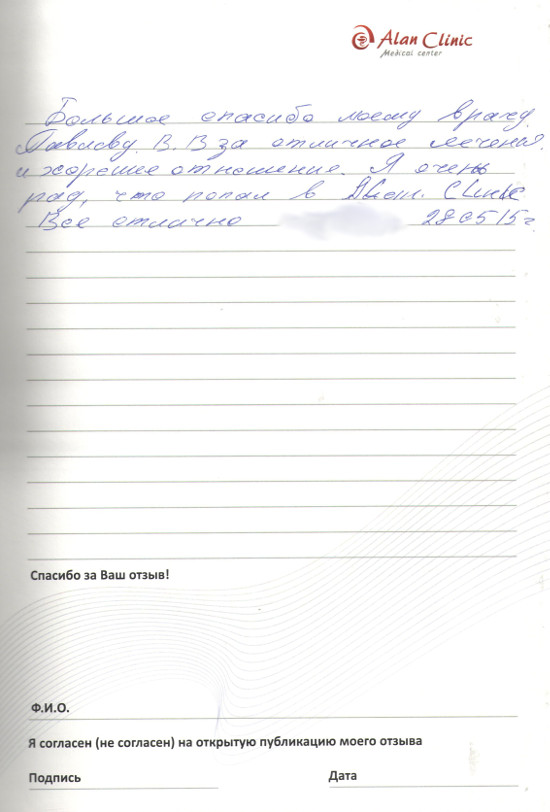 Alan Clinic
Medical center
Большое спасибо моему врачу
Павлову. В. В за отличное лечение
и хорошее отношение. Я очень
рад, что попал в Alan. Clinic
Все отлично 280515г
Спасибо за Ваш отзыв!
Ф.И.О.
Я согласен (не согласен) на открытую публикацию моего отзыва
Подпись Дата